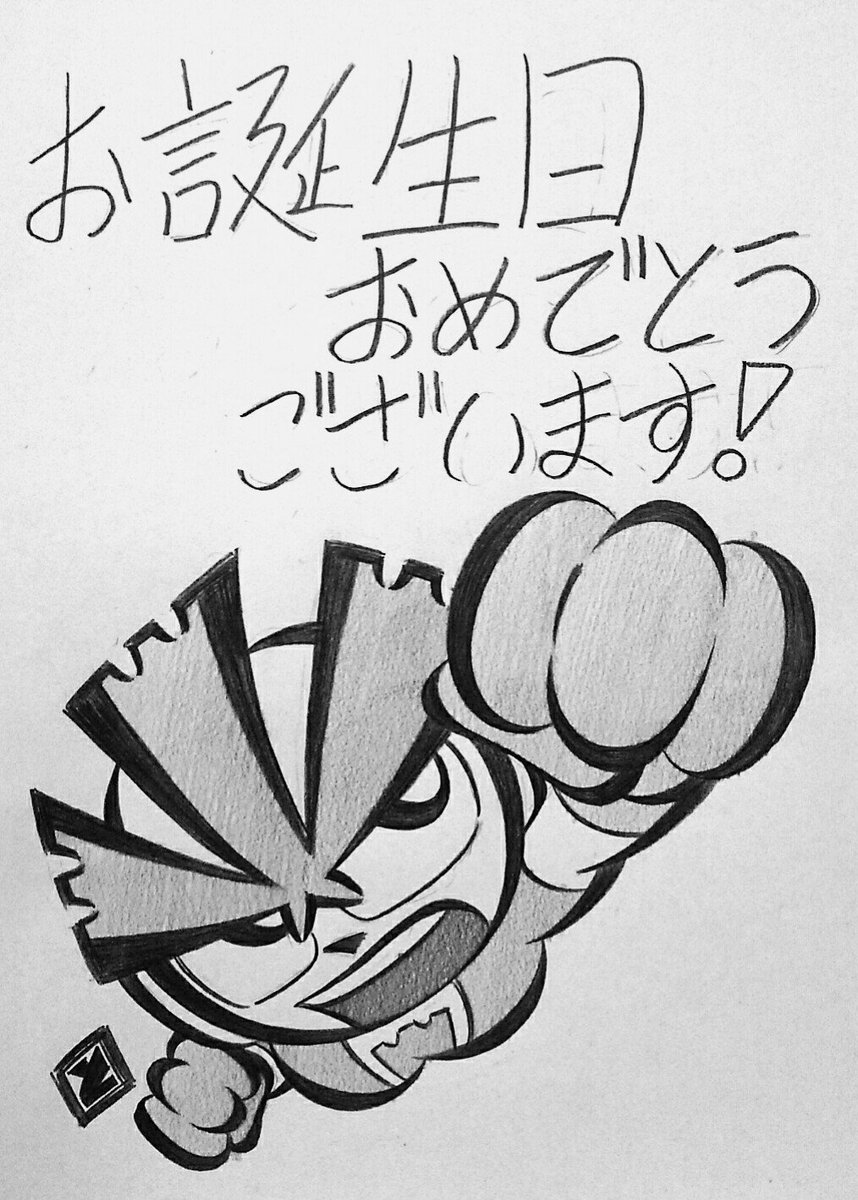 お誕生日
おめでとう
ございます!
N